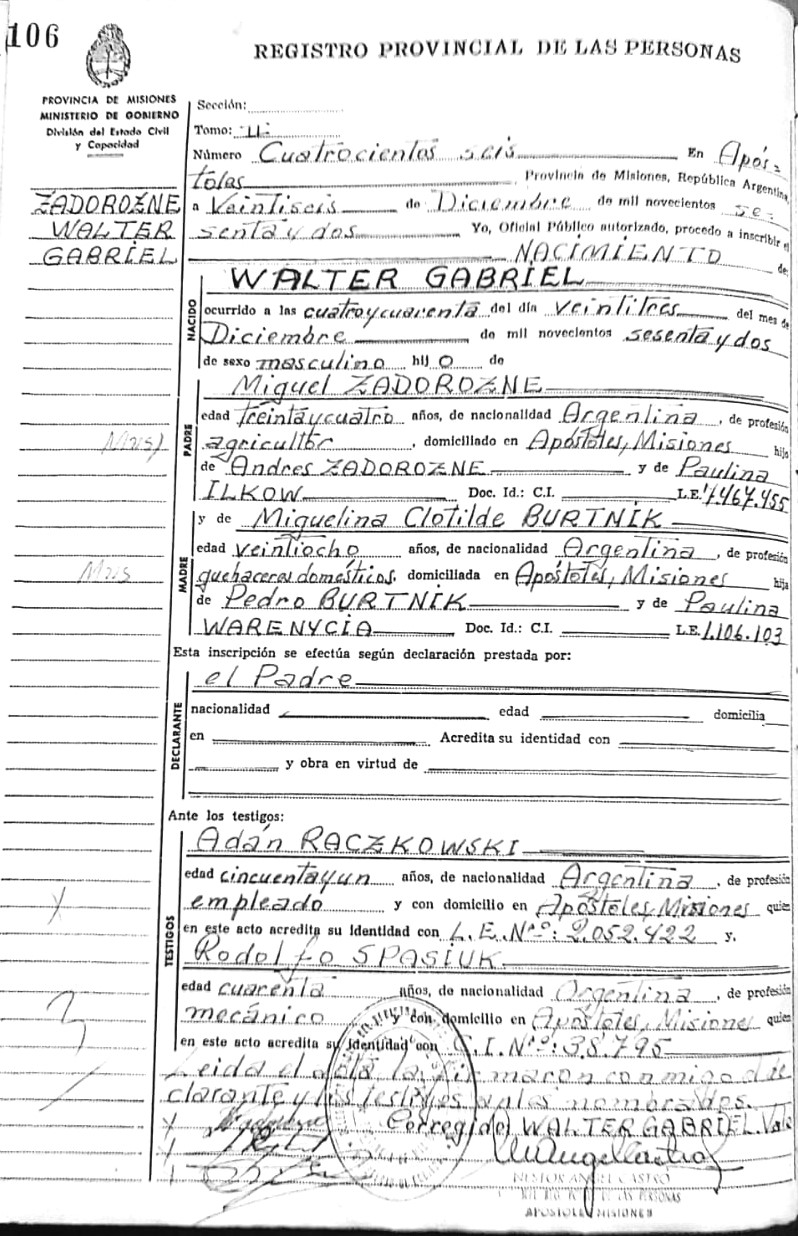 106
REGISTRO PROVINCIAL DE LAS PERSONAS
PROVINCIA DE MISIONES
MINISTERIO DE GOBIERNO
División del Estado Civil
y Capacidad
ZADOROZNE
WALTER
GABRIEL
Sección:
Tomo: II
Número Cuatrocientos seis En Após-
toles Provincia de Misiones, República Argentina,
a Veintiseis de Diciembre de mil novecientos se-
senta y dos Yo, Oficial Público autorizado, procedo a inscribir el
NACIMIENTO de:
NACIDO
WALTER GABRIEL
ocurrido a las cuatro y cuarenta del día veintitrés del mes de
Diciembre de mil novecientos sesenta y dos
de sexo masculino hijo de
PADRE
Miguel ZADOROZNE
edad treinta y cuatro años, de nacionalidad Argentina, de profesión
agricultor, domiciliado en Apóstoles, Misiones hijo
de Andres ZADOROZNE y de Paulina
ILKOW Doc. Id.: C.I. L.E. 7.467.455
MADRE
y de Miguelina Clotilde BURTNIK
edad veintiocho años, de nacionalidad Argentina, de profesión
quehaceres domésticos, domiciliada en Apóstoles, Misiones hija
de Pedro BURTNIK y de Paulina
WARENYCIA Doc. Id.: C.I. L.E. 1.106.103
Esta inscripción se efectúa según declaración prestada por:
DECLARANTE
el Padre
nacionalidad edad domicilia
en Acredita su identidad con
y obra en virtud de
Ante los testigos:
TESTIGOS
Adán RACZKOWSKI
edad cincuenta y un años, de nacionalidad Argentina, de profesión
empleado y con domicilio en Apóstoles, Misiones quien
en este acto acredita su Identidad con L.E. Nº: 2.052.422 y,
Rodolfo SPASIUK
edad cuarenta años, de nacionalidad Argentina, de profesión
mecánico y con domicilio en Apóstoles, Misiones quien
en este acto acredita su Identidad con C.I. Nº: 38.795
Leida el acta la firmaron conmigo el de
clarante y los testigos antes nombrados.
Corregido: WALTER GABRIEL. Vale
NESTOR ANGEL CASTRO
DE LAS PERSONAS
APOSTOLES MISIONES